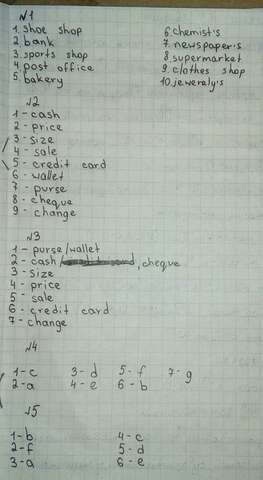 №1
1. shoe shop
2. bank
3. sports shop
4. post office
5. bakery
6. chemist's
7. newspaper's
8. supermarket
9. clothes shop
10. jewerely's
№2
1 - cash
2 - price
3 - size
4 - sale
5 - credit card
6 - wallet
7 - purse
8 - cheque
9 - change
№3
1 - purse/wallet
2 - cash/ , cheque
3 - size
4 - price
5 - sale
6 - credit card
7 - change
№4
1-c 3-d 5-f 7-g
2-a 4-e 6-b
№5
1-b 4-c
2-f 5-d
3-a 6-e